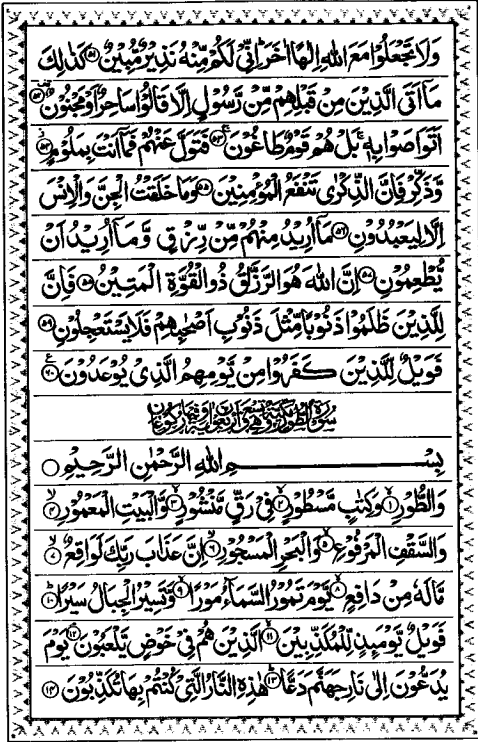 وَلَا تَجْعَلُوْا مَعَ اللّٰهِ اِلٰهًا اٰخَرَ ؕ اِنِّيْ لَكُمْ مِّنْهُ نَذِيْرٌ مُّبِيْنٌ ۝۵۱ كَذٰلِكَ
مَاۤ اَتَى الَّذِيْنَ مِنْ قَبْلِهِمْ مِّنْ رَّسُوْلٍ اِلَّا قَالُوْا سَاحِرٌ اَوْ مَجْنُوْنٌ ۝۵۲
اَتَوَاصَوْا بِهٖ ۚ بَلْ هُمْ قَوْمٌ طَاغُوْنَ ۝۵۳ فَتَوَلَّ عَنْهُمْ فَمَاۤ اَنْتَ بِمَلُوْمٍ ۝۵۴
وَّ ذَكِّرْ فَاِنَّ الذِّكْرٰى تَنْفَعُ الْمُؤْمِنِيْنَ ۝۵۵ وَمَا خَلَقْتُ الْجِنَّ وَالْاِنْسَ
اِلَّا لِيَعْبُدُوْنِ ۝۵۶ مَاۤ اُرِيْدُ مِنْهُمْ مِّنْ رِّزْقٍ وَّ مَاۤ اُرِيْدُ اَنْ
يُّطْعِمُوْنِ ۝۵۷ اِنَّ اللّٰهَ هُوَ الرَّزَّاقُ ذُو الْقُوَّةِ الْمَتِيْنُ ۝۵۸ فَاِنَّ
لِلَّذِيْنَ ظَلَمُوْا ذَنُوْبًا مِّثْلَ ذَنُوْبِ اَصْحٰبِهِمْ فَلَا يَسْتَعْجِلُوْنِ ۝۵۹
فَوَيْلٌ لِّلَّذِيْنَ كَفَرُوْا مِنْ يَّوْمِهِمُ الَّذِيْ يُوْعَدُوْنَ ۝۶۰
سُوْرَةُ الطُّوْرِ مَكِّيَّةٌ وَّهِيَ تِسْعٌ وَّاَرْبَعُوْنَ اٰيَةً وَّفِيْهَا رُكُوْعَانِ
بِسْمِ اللّٰهِ الرَّحْمٰنِ الرَّحِيْمِ ۝
وَالطُّوْرِ ۝۱ وَكِتٰبٍ مَّسْطُوْرٍ ۝۲ فِيْ رَقٍّ مَّنْشُوْرٍ ۝۳ وَّالْبَيْتِ الْمَعْمُوْرِ ۝۴
وَالسَّقْفِ الْمَرْفُوْعِ ۝۵ وَالْبَحْرِ الْمَسْجُوْرِ ۝۶ اِنَّ عَذَابَ رَبِّكَ لَوَاقِعٌ ۝۷
مَّا لَهٗ مِنْ دَافِعٍ ۝۸ يَّوْمَ تَمُوْرُ السَّمَآءُ مَوْرًا ۝۹ وَّ تَسِيْرُ الْجِبَالُ سَيْرًا ۝۱۰
فَوَيْلٌ يَّوْمَىِٕذٍ لِّلْمُكَذِّبِيْنَ ۝۱۱ الَّذِيْنَ هُمْ فِيْ خَوْضٍ يَّلْعَبُوْنَ ۝۱۲ يَوْمَ
يُدَعُّوْنَ اِلٰى نَارِ جَهَنَّمَ دَعًّا ۝۱۳ هٰذِهِ النَّارُ الَّتِيْ كُنْتُمْ بِهَا تُكَذِّبُوْنَ ۝۱۴